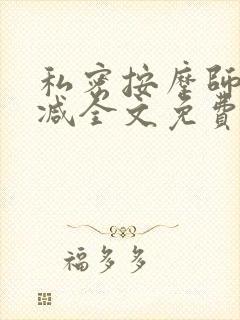 私密按摩師
减全文免費
福多多